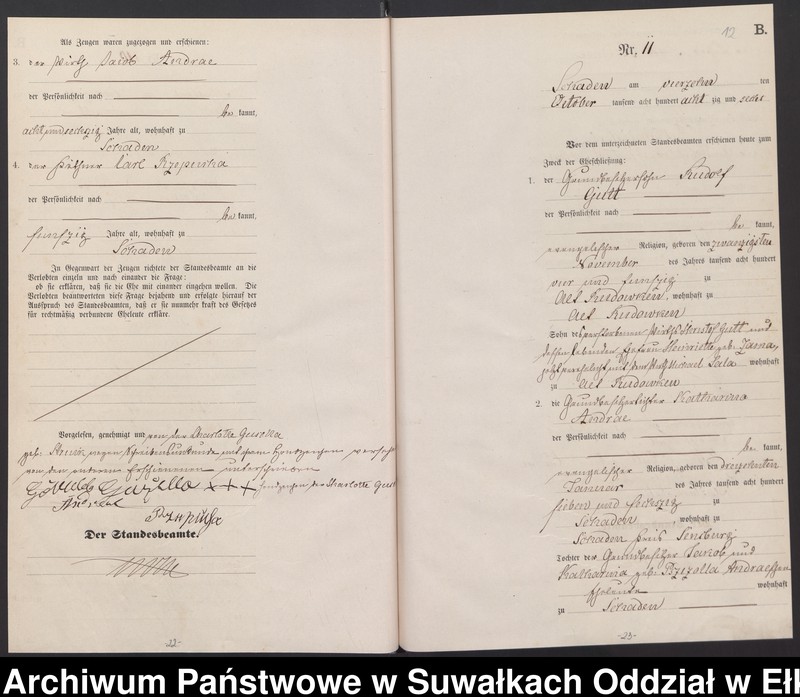 Als Zeugen waren zugezogen und erschienen:
3. der Wirth Jacob Andrae
der Persönlichkeit nach
be kannt,
acht und sechzig Jahre alt, wohnhaft zu
Schaden
4. der Carl
der Persönlichkeit nach
be kannt,
funfzig Jahre alt, wohnhaft zu
Schaden
In Gegenwart der Zeugen richtete der Standesbeamte an die
Verlobten einzeln und nach einander die Frage:
ob sie erklären, daß sie die Ehe mit einander eingehen wollen. Die
Verlobten beantworteten diese Frage bejahend und erfolgte hierauf der
Ausspruch des Standesbeamten, daß er sie nunmehr kraft des Gesetzes
für rechtmäßig verbundene Eheleute erkläre.
Vorgelesen, genehmigt und von der Charlotte
geb. wegen Schreibensunkunde mit ihrem Handzeichen versehen
von den anderen Erschienenen unterschrieben
+++ Handzeichen der Charlotte
Andreae
Der Standesbeamte.
-22-
12
B.
Nr. 11
Schaden am vierzehn ten
October tausend acht hundert acht zig und sechs
Vor dem unterzeichneten Standesbeamten erschienen heute zum
Zweck der Eheschließung:
1. der Grundbesitzersohn Rudolf
Gutt
der Persönlichkeit nach
be kannt,
evangelischer Religion, geboren den zwanzigsten
November des Jahres tausend acht hundert
vier und funfzig zu
Alt Rudowken, wohnhaft zu
Alt Rudowken
Sohn des verstorbenen Wirths Gutt und
dessen lebenden Ehefrau Henriette geb.
jetzt verehelicht mit dem Wirth Michael wohnhaft
zu Alt Rudowken
2. die Grundbesitzertochter Katharina
Andrae
der Persönlichkeit nach
be kannt,
evangelischer Religion, geboren den dreizehnten
Januar des Jahres tausend acht hundert
sieben und sechszig zu
Schaden, wohnhaft zu
Schaden Kreis Sensburg
Tochter der Grundbesitzer Jacob und
Katharina geb. Andrae'schen
Eheleute wohnhaft
zu Schaden
-23-
Archiwum Państwowe w Suwałkach Oddział w Eł